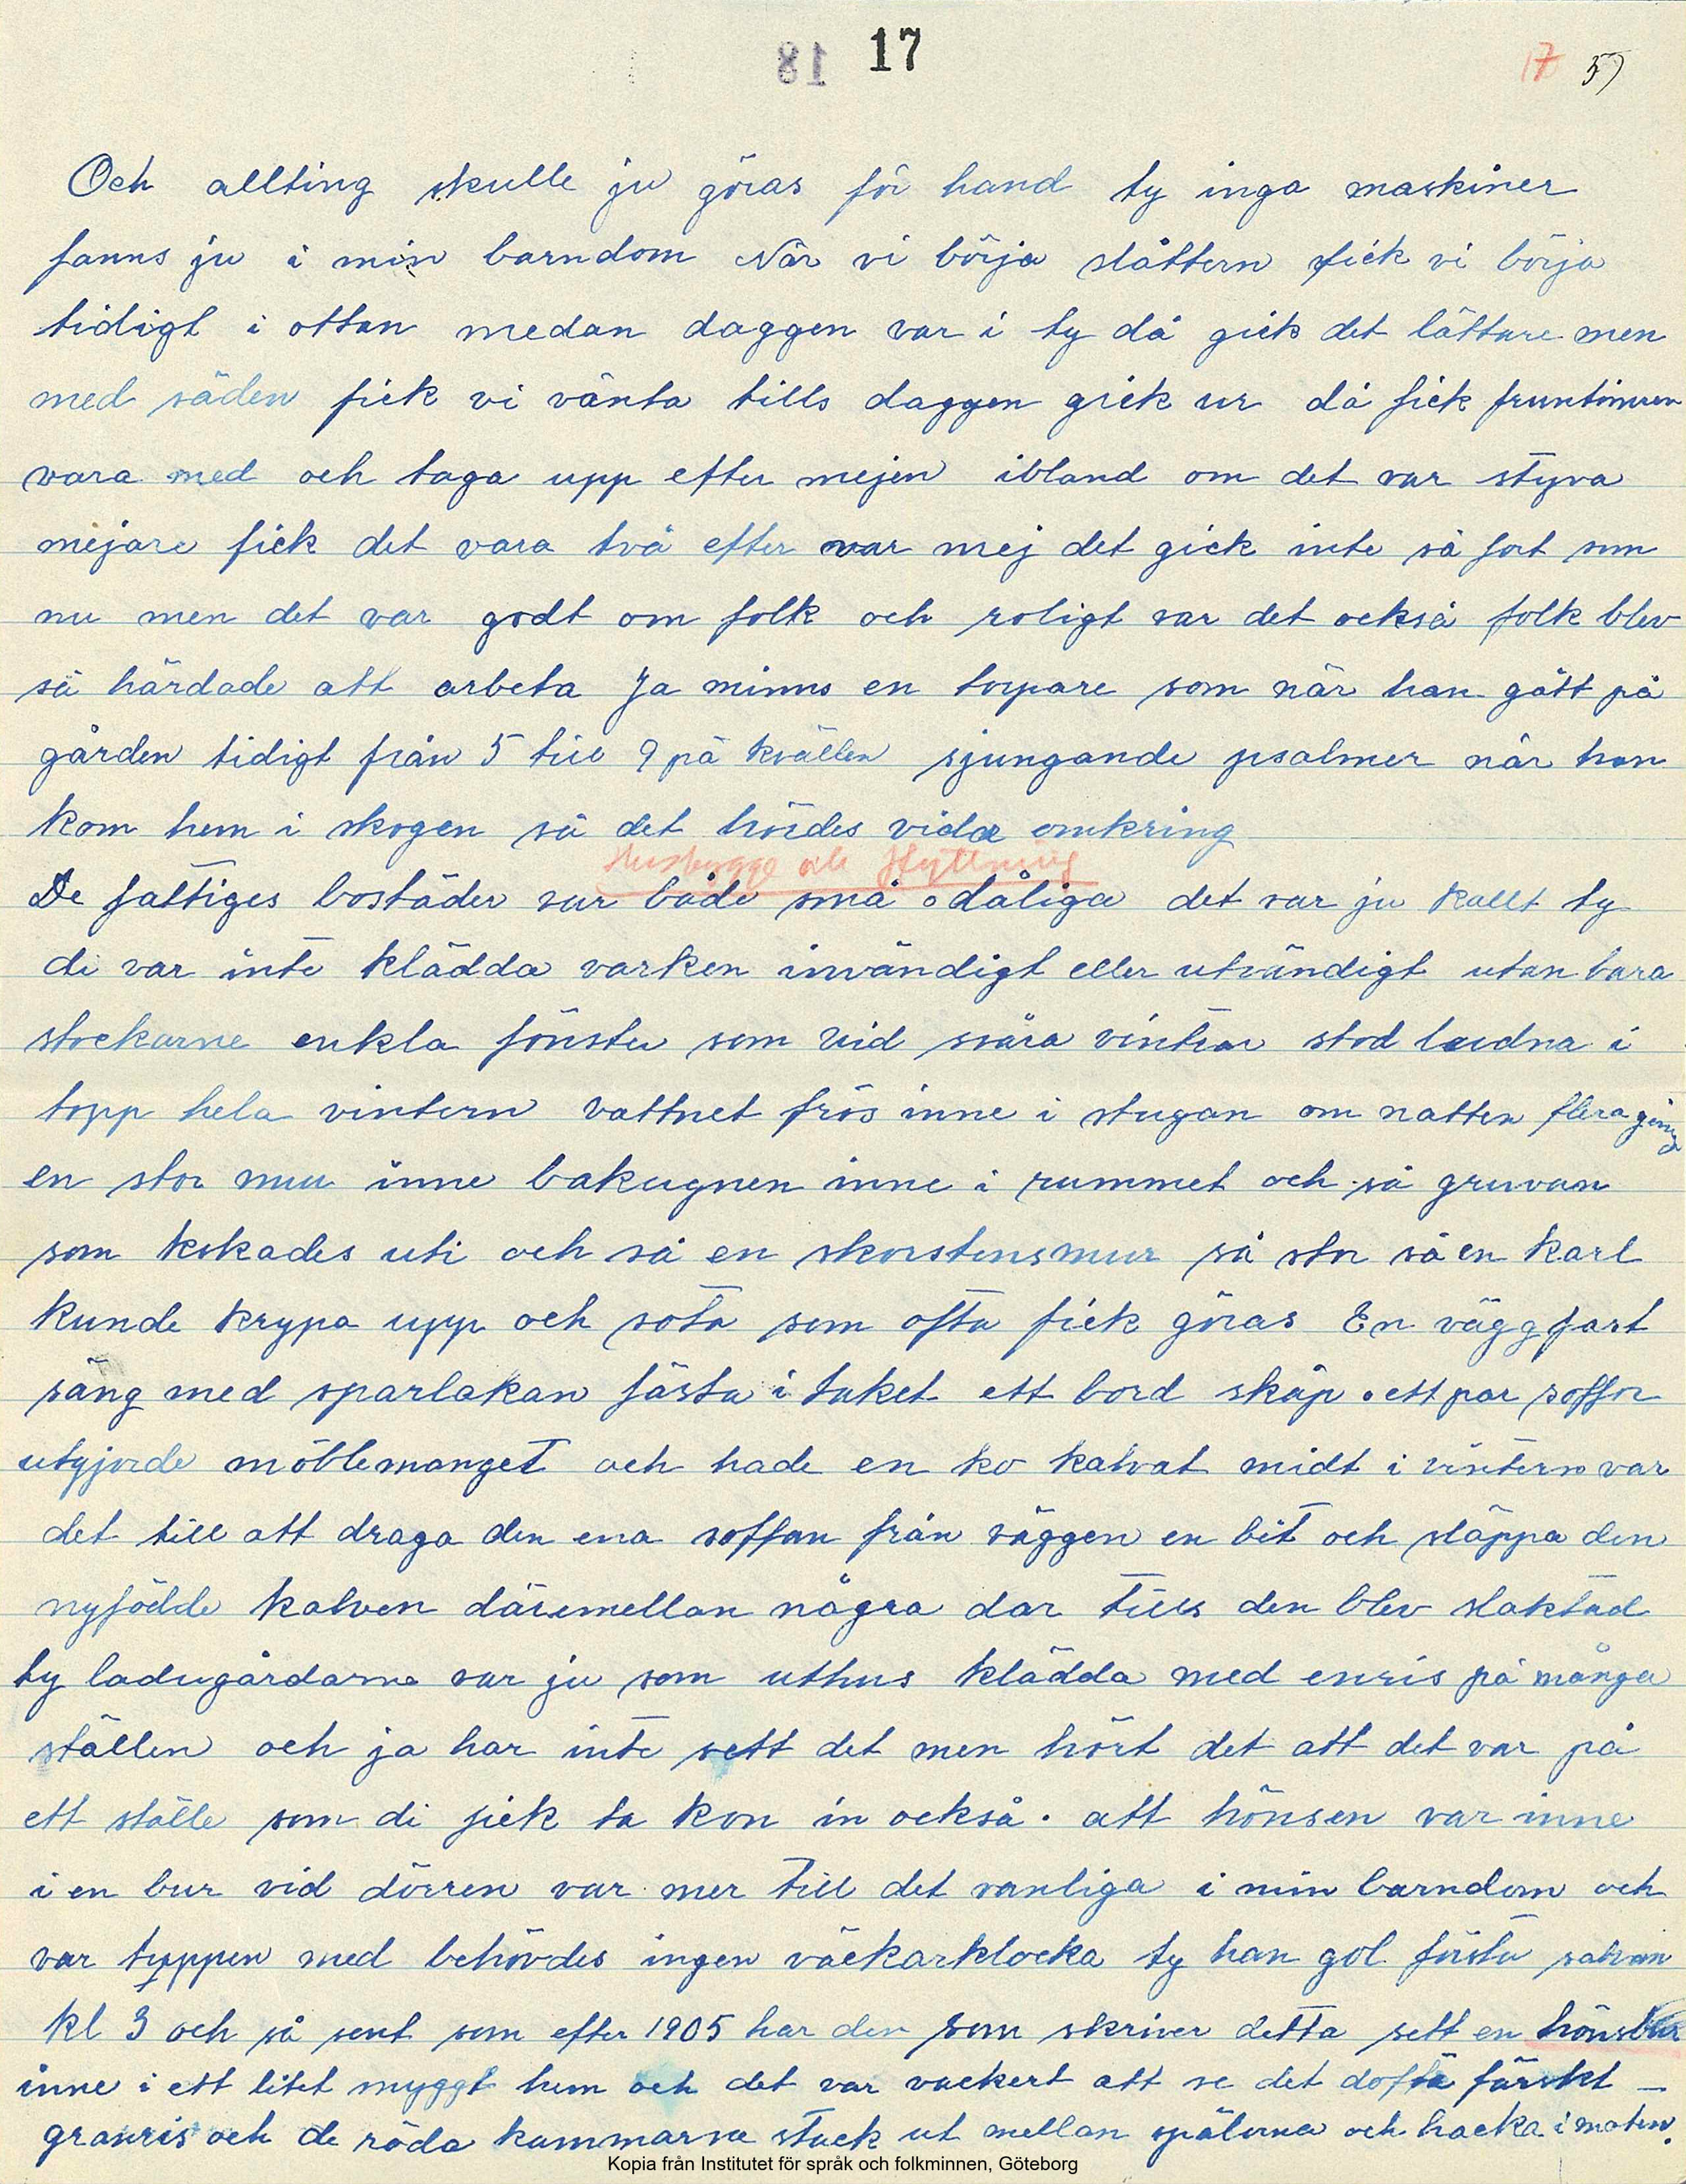 18 17
17 5)
Och allting skulle ju göras för hand ty inga maskiner
fanns ju i min barndom När vi börja slåttern fick vi börja
tidigt i ottan medan daggen var i ty då gick det lättare men
med säden fick vi vänta tills daggen gick ur då fick fruntimren
vara med och taga upp efter mejen ibland om det var styva
mejare fick det vara två efter var mej det gick inte så fort som
nu men det var godt om folk och roligt var det också folk blev
så härdade att arbeta Ja minns en torpare som när han gått på
gården tidigt från 5 till 9 på kvällen sjungande psalmer när han
kom hem i skogen så det hördes vida omkring
Husbygge och flyttning
De fattiges bostäder var både små o dåliga det var ju kallt ty
di var inte klädda varken invändigt eller utvändigt utan bara
stockarne enkla fönster som vid svåra vintrar stod ludna i
topp hela vintern vattnet frös inne i stugan om natten flera gånger
en stor mur inne bakugnen inne i rummet och så gruvan
som kokades uti och så en skorstensmur så stor så en karl
kunde krypa upp och sota som ofta fick göras En väggfast
säng med sparlakan fästa i taket ett bord skåp o ett par soffor
utgjorde möblemanget och hade en ko kalvat midt i vintern var
det till att draga den ena soffan från väggen en bit och släppa den
nyfödde kalven däremellan några dar tills den blev slaktad
ty ladugårdarna var ju som uthus klädda med enris på många
ställen och ja har inte sett det men hört det att det var på
ett ställe som di fick ta kon in också. att hönsen var inne
i en bur vid dörren var mer till det vanliga i min barndom och
var typpen med behövdes ingen väckarklocka ty han gol första salvan
kl 3 och så sent som efter 1905 har den som skriver detta sett en hönsbur
inne i ett litet snyggt hem och det var vackert att se det dofta färskt –
granris och de röda kammarna stack ut mellan spjälorna och hacka i maten.
Kopia från Institutet för språk och folkminnen, Göteborg